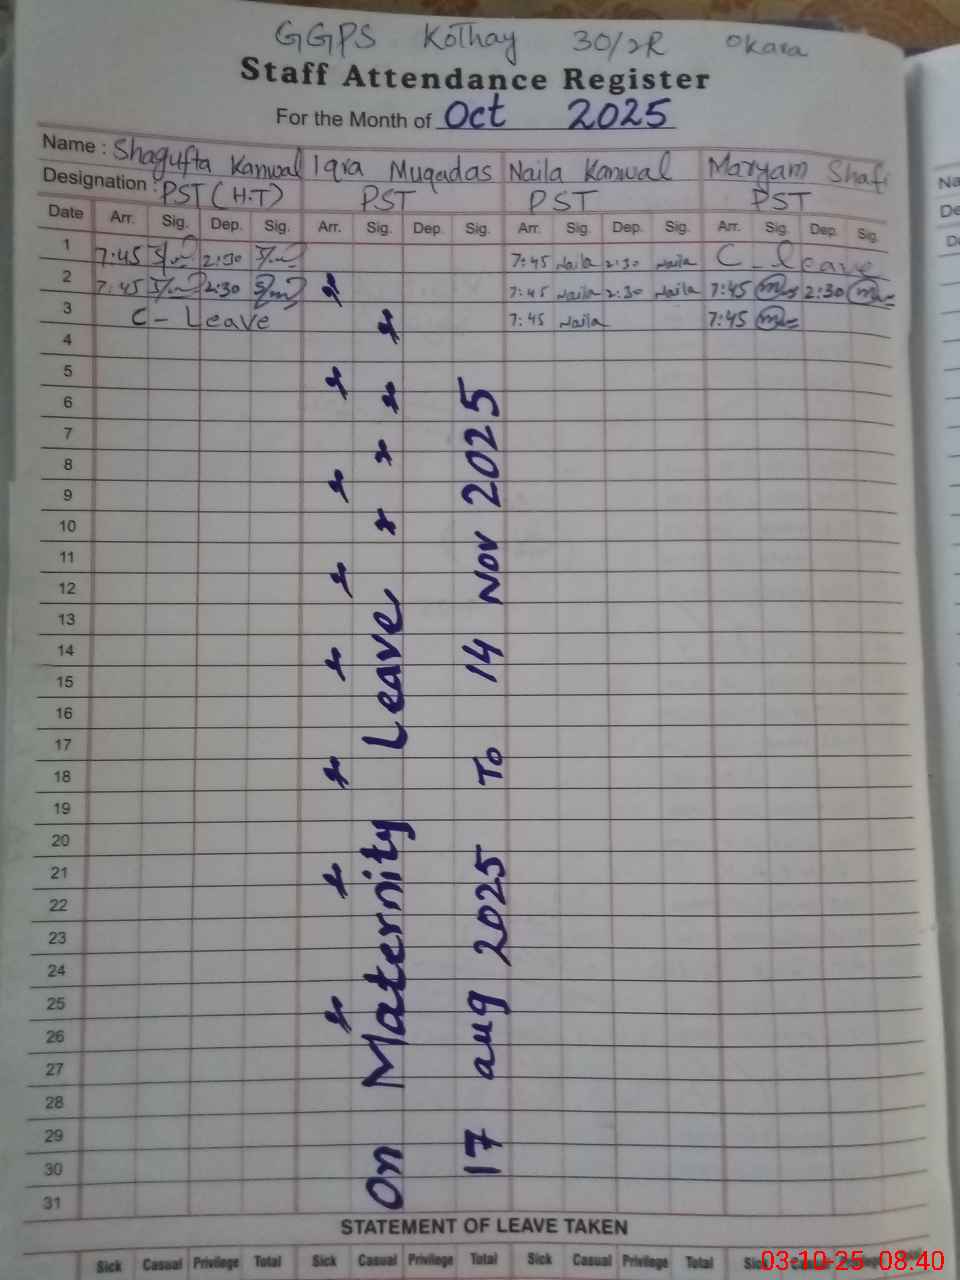 GGPS Kothay 30/2R Okara
Staff Attendance Register
For the Month of Oct 2025
Name : Shagufta Kanwal Iqra Muqadas Naila Kanwal Maryam Shafi
Designation : PST (H.T) PST PST PST
Date Arr. Sig. Dep. Sig. Arr. Sig. Dep. Sig. Arr. Sig. Dep. Sig. Arr. Sig. Dep. Sig.
1 7:45 2:30 7:45 Naila 2:30 Naila C - leave
2 7:45 2:30 7:45 Naila 2:30 Naila 7:45 2:30
3 C - Leave 7:45 Naila 7:45
4
5
6
7
8
9
10
11
12
13
14
15
16
17
18
19
20
21
22
23
24
25
26
27
28
29
30
31
On Maternity Leave
17 aug 2025 To 14 Nov 2025
STATEMENT OF LEAVE TAKEN
Sick Casual Privilege Total Sick Casual Privilege Total Sick Casual Privilege Total Sick Casual Privilege
03-10-25-08:40
Na
De